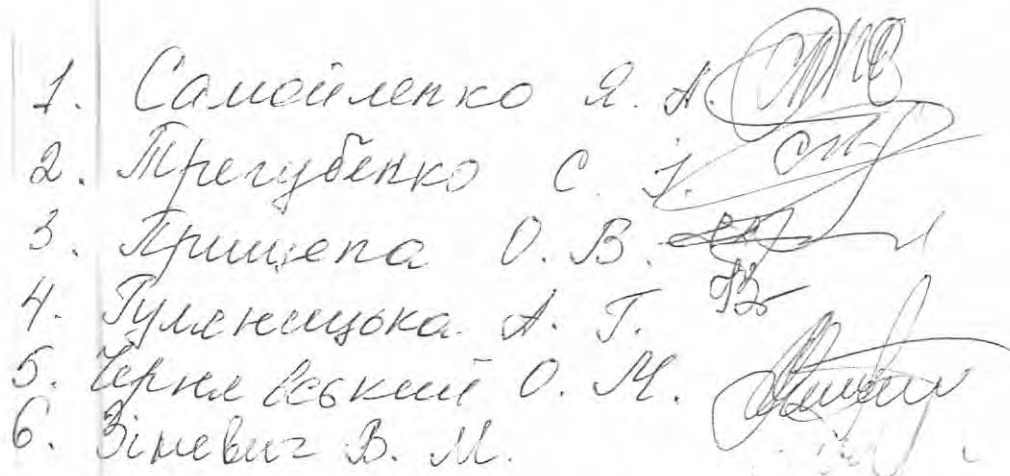 1. Самойленко Я. А.
2. Трегубенко С. І.
3. Прищепа О. В.
4. Гуленицька А. Г.
5. Чернявський О. М.
6. Зіневич В. М.